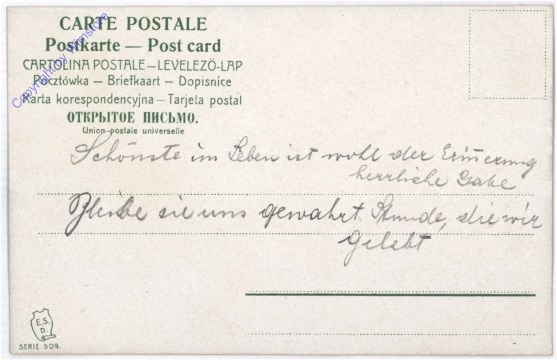 CARTE POSTALE
Postkarte — Post card
CARTOLINA POSTALE — LEVELEZÖ-LAP
Pocztówka — Briefkaart — Dopisnice
Karta korespondencyjna — Tarjeta postal
ОТКРЫТОЕ ПИСЬМО.
Union postale universelle
Schönste im Leben ist wohl der Erinnerung
herrliche Gabe
Bleibe sie uns gewahrt Stunde, die wir
gelebt
E.S.
D.
SERIE 509.